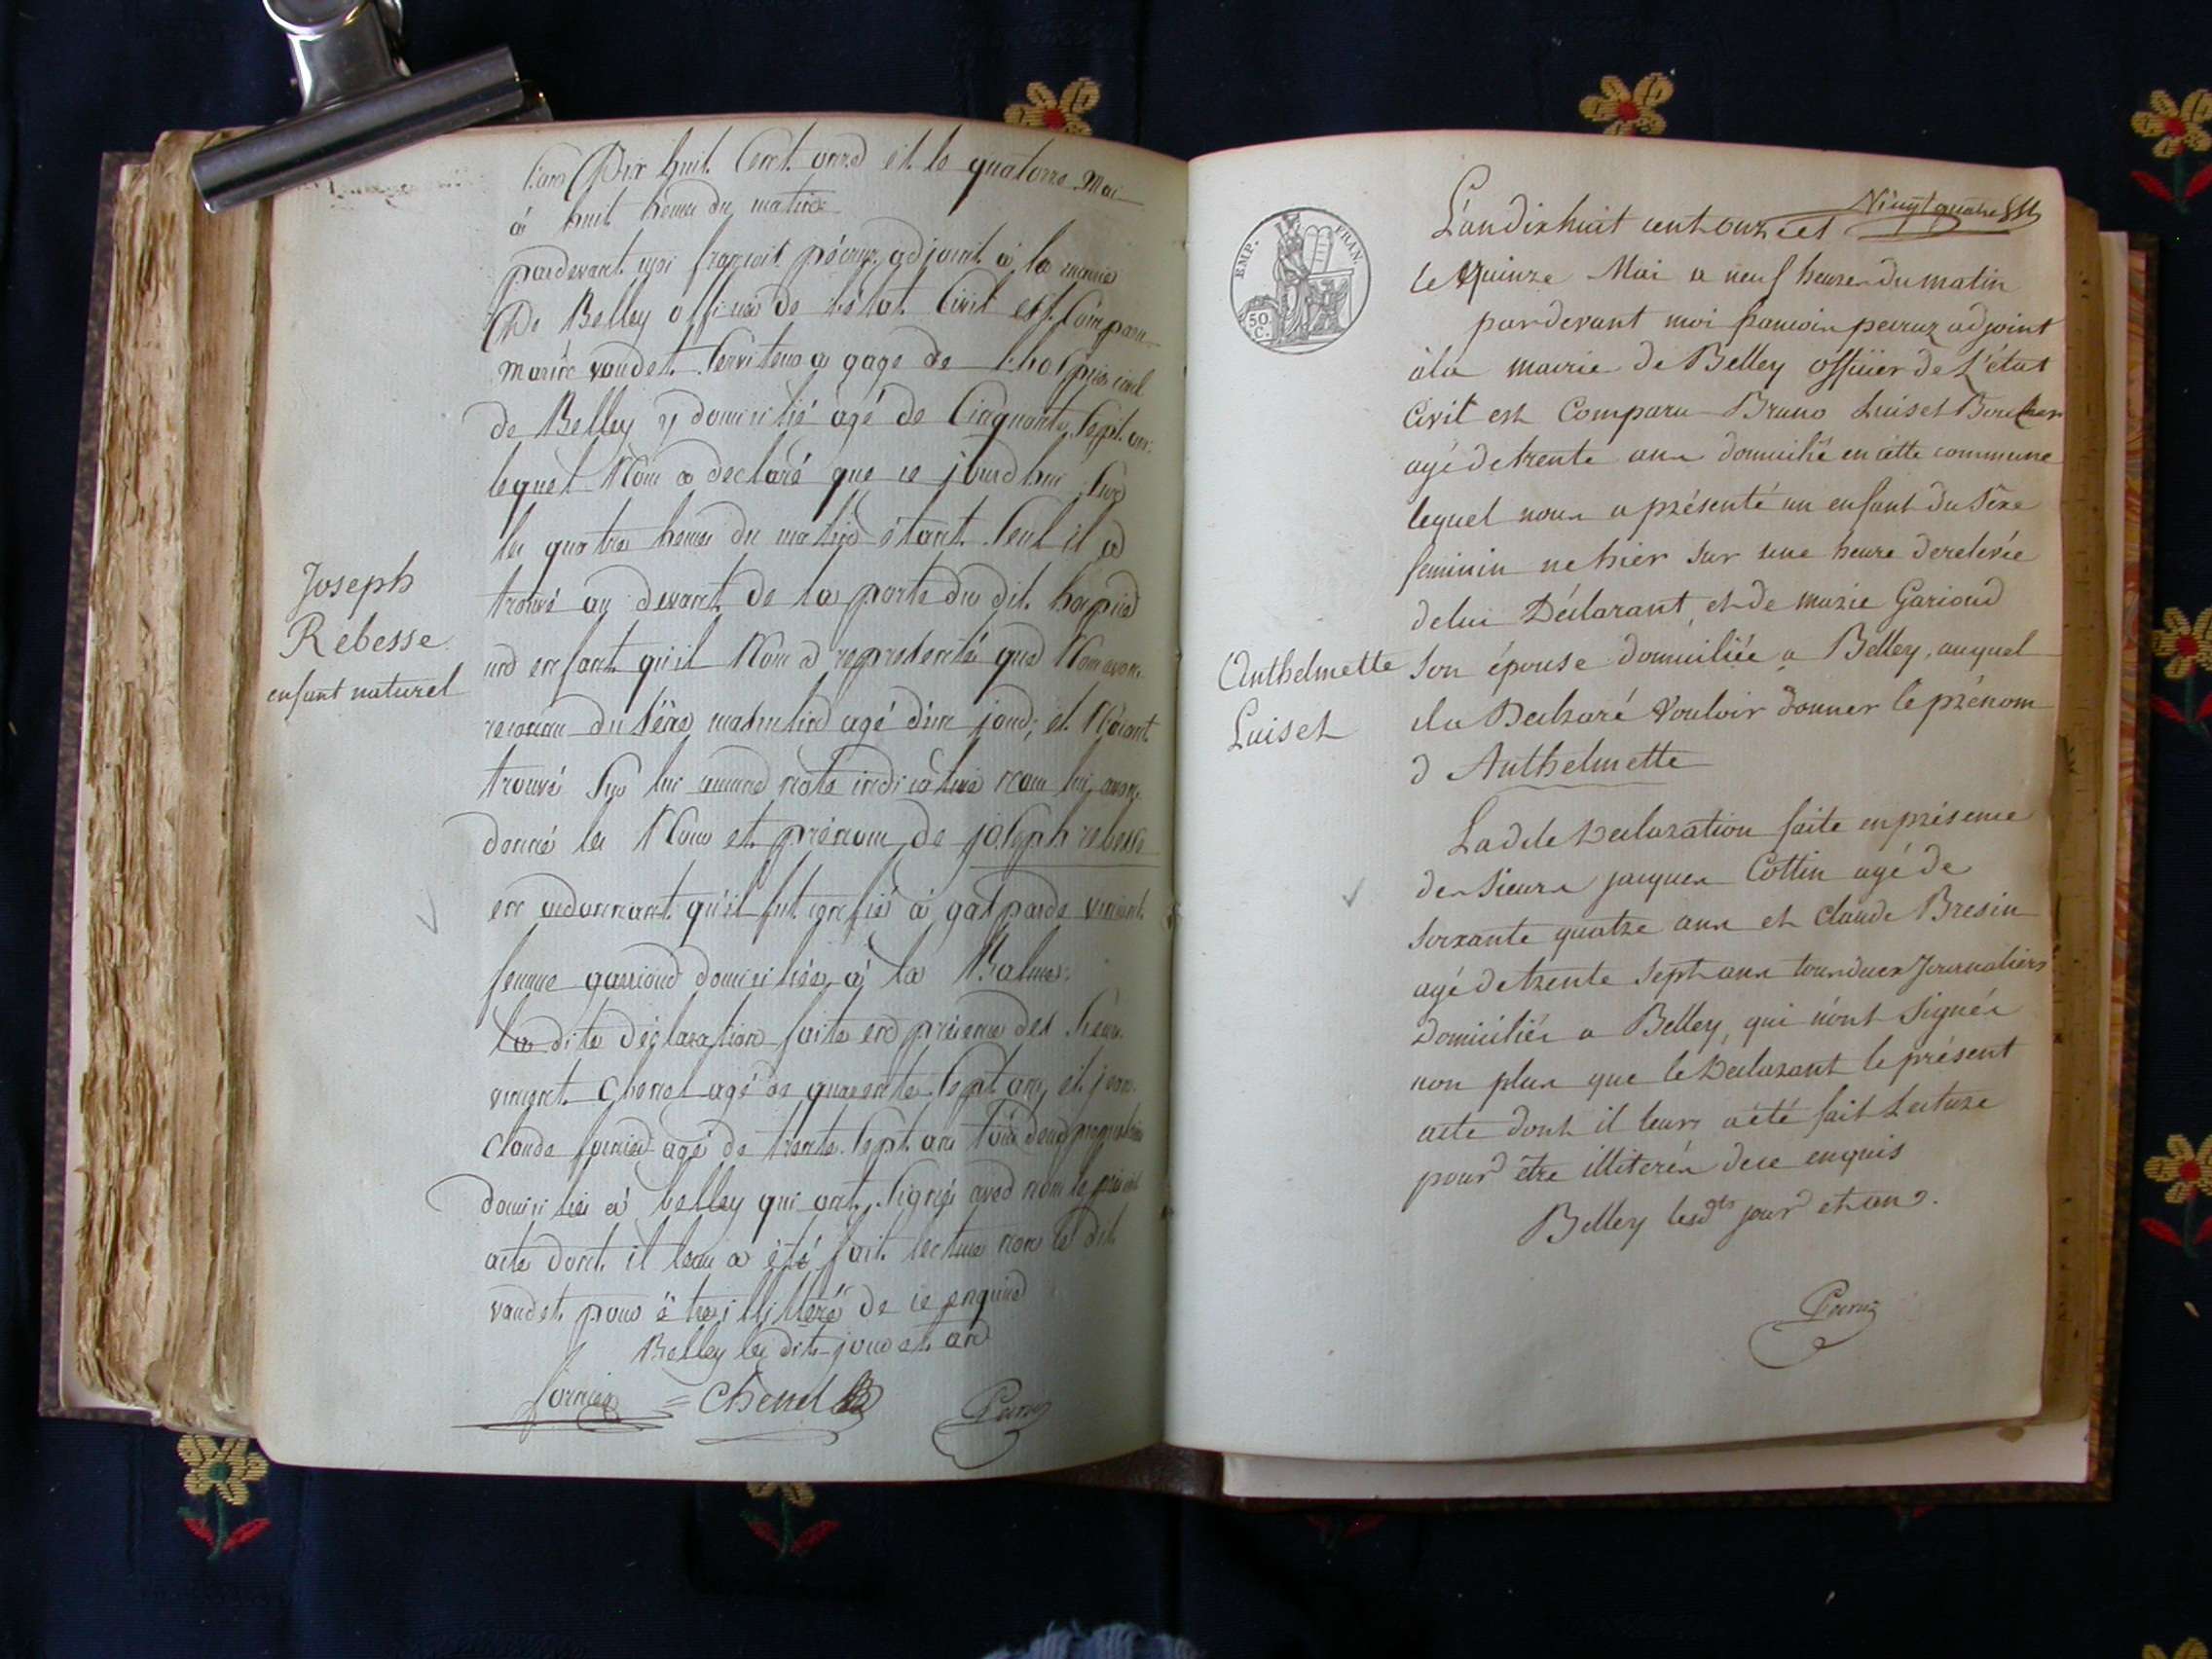 L'an Dix huit Cent onze et le quatorze Mai
à huit heures du matin
pardevant moi françois pécruz adjoint à la mairie
De Belley officier de l'état Civil est Comparu
vaudet Serviteur a gage de l'hospice civil
de Belley y domicilié agé de Cinquante Sept ans
lequel Nous a declaré que ce jourdhui Sur
les quatre heures du matin étant Seul il a
trouvé au devant de la porte du dit hospice
un enfant qu'il Nous a representé que Nous avons
reconnu du Séxe masculin agé d'un jour, et N'ayant
trouvé Sur lui aucune note indicative nous lui avons
donné les Noms et prénom de joseph rebesse
en ordonnant qu'il fut confié à gasparde vincent
femme garrioud domiciliée à la Balme
la dite déclaration faite en présence des Sieurs
vincent Chenel agé de quarente Sept ans et jean
Claude fornier agé de trente Sept ans tous deux
domiciliés à belley qui ont Signés avec nous le présent
acte dont il leur a été fait lecture non le dit
vaudet pour être illitéré de ce enquis
Belley les dits jour et an
fornier = Chenel Pécruz
Joseph
Rebesse
enfant naturel
EMP. FRAN.
50
C.
L'an dix huit cent onze et
le quinze Mai a neuf heures du matin
pardevant moi francois pecruz adjoint
à la mairie de Belley officier de L'état
Civil est Comparu Bruno Luiset Boucher
agé de trente ans domicilié en cette commune
lequel nous a présenté un enfant du Séxe
feminin né hier sur une heure de relevée
de lui Déclarant, et de marie Garioud
son épouse domiciliée a Belley, auquel
il a Declaré Vouloir donner le prénom
d Anthelmette
Lad.te Declaration faite en présence
des Sieurs jacques Cottin agé de
soixante quatre ans et Claude Bresin
agé de trente sept ans tous deux Journaliers
Domiciliés a Belley, qui n'ont Signés
non plus que le Declarant le présent
acte dont il leurs a été fait Lecture
pour être illiterés de ce enquis
Belley lesd.ts jour et an.
Pécruz
Anthelmette
Luiset